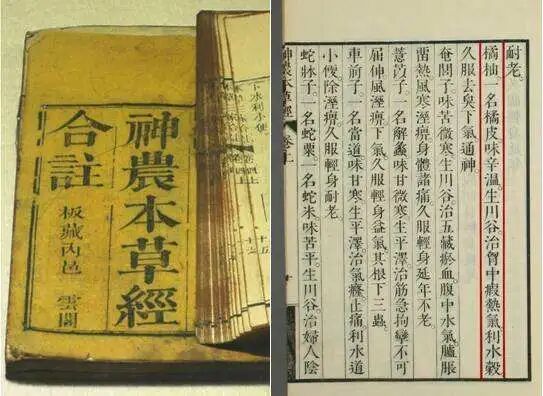 神農本草經
合註
板藏
雲閣
下水利小便
耐老。
橘柚。一名橘皮味辛溫生川谷治胷中瘕熱氣利水穀
久服去臭下氣通神
奄閭子。味苦微寒生川谷治五藏瘀血腹中水氣臚脹
畱熱風寒溼痹身體諸痛久服輕身延年不老
薏苡子。一名解蠡味甘微寒生平澤治筋急拘攣不可
屈伸風溼痹下氣久服輕身益氣其根下三蟲
車前子。一名當道味甘寒生平澤治氣癃止痛利水道
小便除溼痹久服輕身耐老
蛇牀子。一名蛇粟一名蛇米味苦平生川谷治婦人陰
神農本草經 卷上